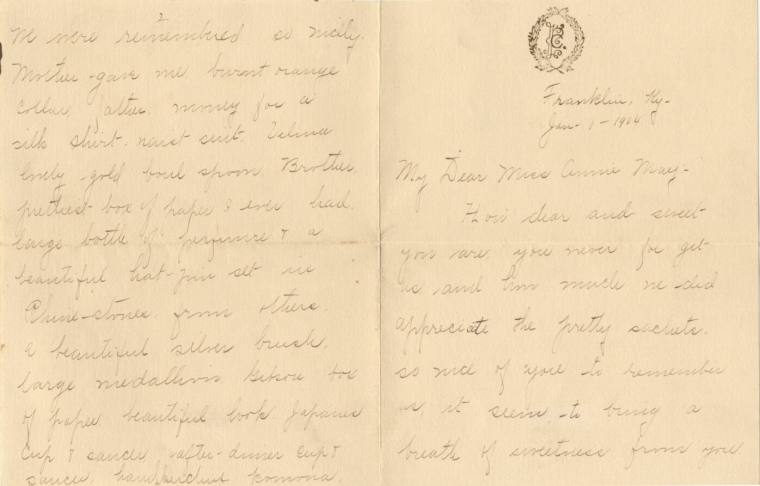 Franklin, Ky-
Jan- 1 - 1904
My Dear Miss Annie May-
How dear and sweet
you are, you never for get
us and how much we did
appreciate the pretty sachets.
so nice of you to remember
us, it seem to bring a
breath of sweetness from you
We were remembered so nicely.
Mother gave me burnt orange
collar, father money for a
silk shirt-waist suit. Velma
lovely gold boul spoon, Brother
prettiest box of paper I ever had.
large bottle of perfume & a
beautiful hat-pin set in
Rhine-stones from others.
a beautiful silver brush,
large medallion Gibson box
of paper beautiful book Japanese
cup & saucer, after-dinner cup &
saucer, handkerchief pomona,